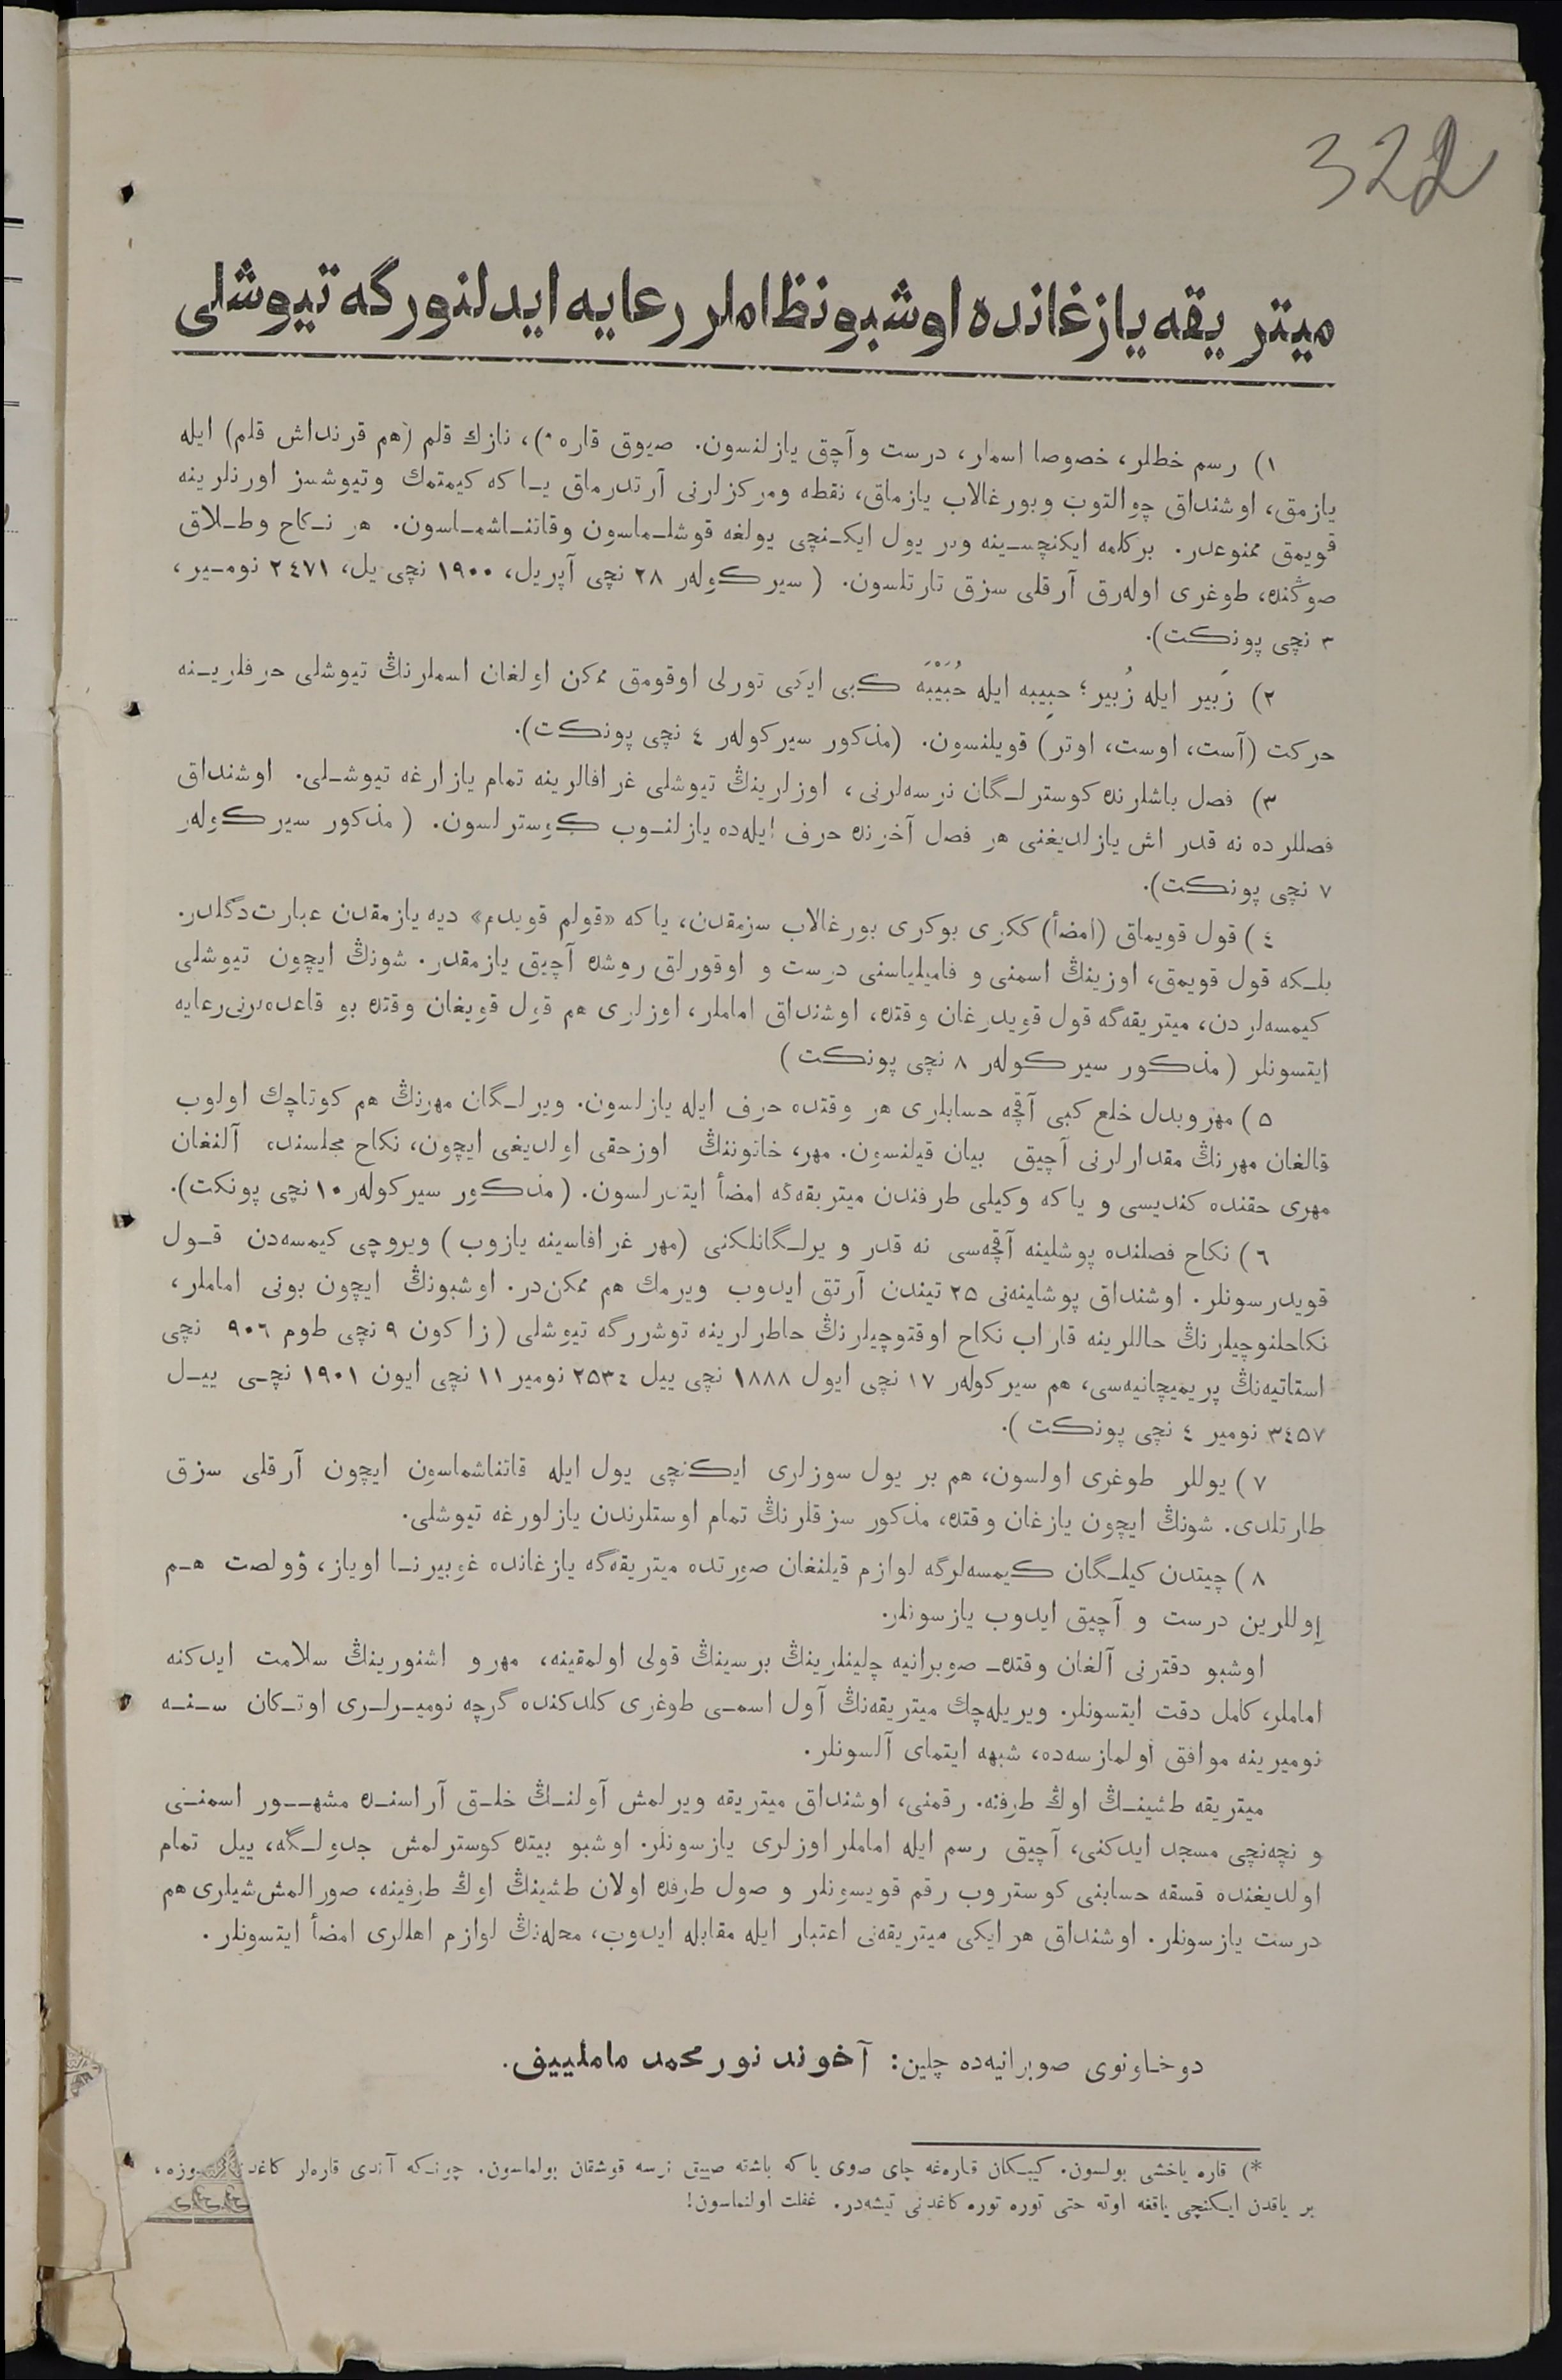 322
ميتريقه يازغانده اوشبو نظاملر رعايه ايدلنورگه تيوشلى
١) رسم خطلر، خصوصا اسملر، درست وآچق يازلنسون. صيوق قاره *)، نازك قلم (هم قرنداش قلم) ايله
يازمق، اوشنداق چوالتوب وبورغالاب يازماق، نقطه ومركزلرنى آرتدرماق ياكه كيمتمك وتيوشسز اورنلرينه
قويمق ممنوعدر. بركلمه ايكنچسينه وبر يول ايكنچى يولغه قوشلماسون وقاتناشماسون. هر نكاح وطلاق
صوڭنده، طوغرى اولەرق آرقلى سزق تارتلسون. (سيركولەر ٢٨ نچى آپريل، ١٩٠٠ نچى يل، ٢٤٧١ نومير،
٣ نچى پونكت).
٢) زَبير ايله زُبير؛ حبِيبه ايله حُبَيْبَه كبى ايكى تورلى اوقومق ممكن اولغان اسملرنڭ تيوشلى حرفلرينه
حركت (آست، اوست، اوتر) قويلنسون. (مذكور سيركولەر ٤ نچى پونكت).
٣) فصل باشلرنده كوسترلگان نرسەلرنى، اوزلرينڭ تيوشلى غرافالرينه تمام يازارغه تيوشلى. اوشنداق
فصللرده نه قدر اش يازلديغنى هر فصل آخرنده حرف ايلەده يازلنوب كوسترلسون. (مذكور سيركولەر
٧ نچى پونكت).
٤) قول قويماق (امضأ) ككرى بوكرى بورغالاب سزمقدن، ياكه «قولم قويدم» ديه يازمقدن عبارت دگلدر.
بلكه قول قويمق، اوزينڭ اسمنى و فاميلياسنى درست و اوقورلق روشده آچيق يازمقدر. شونڭ ايچون تيوشلى
كيمسەلردن، ميتريقەگه قول قويدرغان وقتده، اوشنداق اماملر، اوزلرى هم قول قويغان وقتده بو قاعدەلرنى رعايه
ايتسونلر (مذكور سيركولەر ٨ نچى پونكت)
٥) مهر وبدل خلع كبى آقچه حسابلرى هر وقتده حرف ايله يازلسون. ويرلگان مهرنڭ هم كوتاچك اولوب
قالغان مهرنڭ مقدارلرنى آچيق بيان قيلنسون. مهر، خاتوننڭ اوزحقى اولديغى ايچون، نكاح مجلسنده، آلنغان
مهرى حقنده كنديسى و ياكه وكيلى طرفندن ميتريقەگه امضأ ايتدرلسون. (مذكور سيركولەر ١٠ نچى پونكت).
٦) نكاح فصلنده پوشلينه آقچەسى نه قدر ويرلگانلكنى (مهر غرافاسينه يازوب) ويروچى كيمسەدن قول
قويدرسونلر. اوشنداق پوشلينەنى ٢٥ تيندن آرتق ايدوب ويرمك هم ممكن‌در. اوشبونڭ ايچون بونى اماملر،
نكاحلنوچيلرنڭ حاللرينه قاراب نكاح اوقتوچيلرنڭ خاطرلرينه توشررگه تيوشلى (زاكون ٩ نچى طوم ٩٠٦ نچى
استاتيەنڭ پريميچانيەسى، هم سيركولەر ١٧ نچى ايول ١٨٨٨ نچى ييل ٢٥٣٤ نومير ١١ نچى ايون ١٩٠١ نچى ييل
٣٤٥٧ نومير ٤ نچى پونكت).
٧) يوللر طوغرى اولسون، هم بر يول سوزلرى ايكنچى يول ايله قاتناشماسون ايچون آرقلى سزق
طارتلدى. شونڭ ايچون يازغان وقتده، مذكور سزقلرنڭ تمام اوستلرندن يازلورغه تيوشلى.
٨) چيتدن كيلگان كيمسەلرگه لوازم قيلنغان صورتده ميتريقەگه يازغانده غوبيرنا اوياز، ۋولصت هم
اٍوللرين درست و آچيق ايدوب يازسونلر.
اوشبو دفترنى آلغان وقتده صوبرانيه چلينلرينڭ برسينڭ قولى اولمقينه، مهر و اشنورينڭ سلامت ايدكنه
اماملر، كامل دقت ايتسونلر. ويريلەچك ميتريقەنڭ آول اسمى طوغرى كلدكنده گرچه نوميرلرى اوتكان سنه
نوميرينه موافق اولمازسەده، شبهه ايتماى آلسونلر.
ميتريقه طشينڭ اوڭ طرفنه. رقمنى، اوشنداق ميتريقه ويرلمش آولنڭ خلق آراسنده مشهور اسمنى
و نچەنچى مسجد ايدكنى، آچيق رسم ايله اماملر اوزلرى يازسونلر. اوشبو بيتده كوسترلمش جدولگه، ييل تمام
اولديغنده قسقه حسابنى كوستروب رقم قويسونلر و صول طرفده اولان طشينڭ اوڭ طرفينه، صورالمش شيلرى هم
درست يازسونلر. اوشنداق هر ايكى ميتريقەنى اعتبار ايله مقابله ايدوب، محلەنڭ لوازم اهللرى امضأ ايتسونلر.
دوخاونوى صوبرانيەده چلين: آخوند نورمحمد ماملييف.
*) قاره ياخشى بولسون. كيبكان قارەغه چاى صوى ياكه باشقه صييق نرسه قوشقان بولماسون. چونكه آندى قارەلر كاغد
بر ياقدن ايكنچى ياقغه اوته حتى توره توره كاغدنى تيشەدر. غفلت اولنماسون!